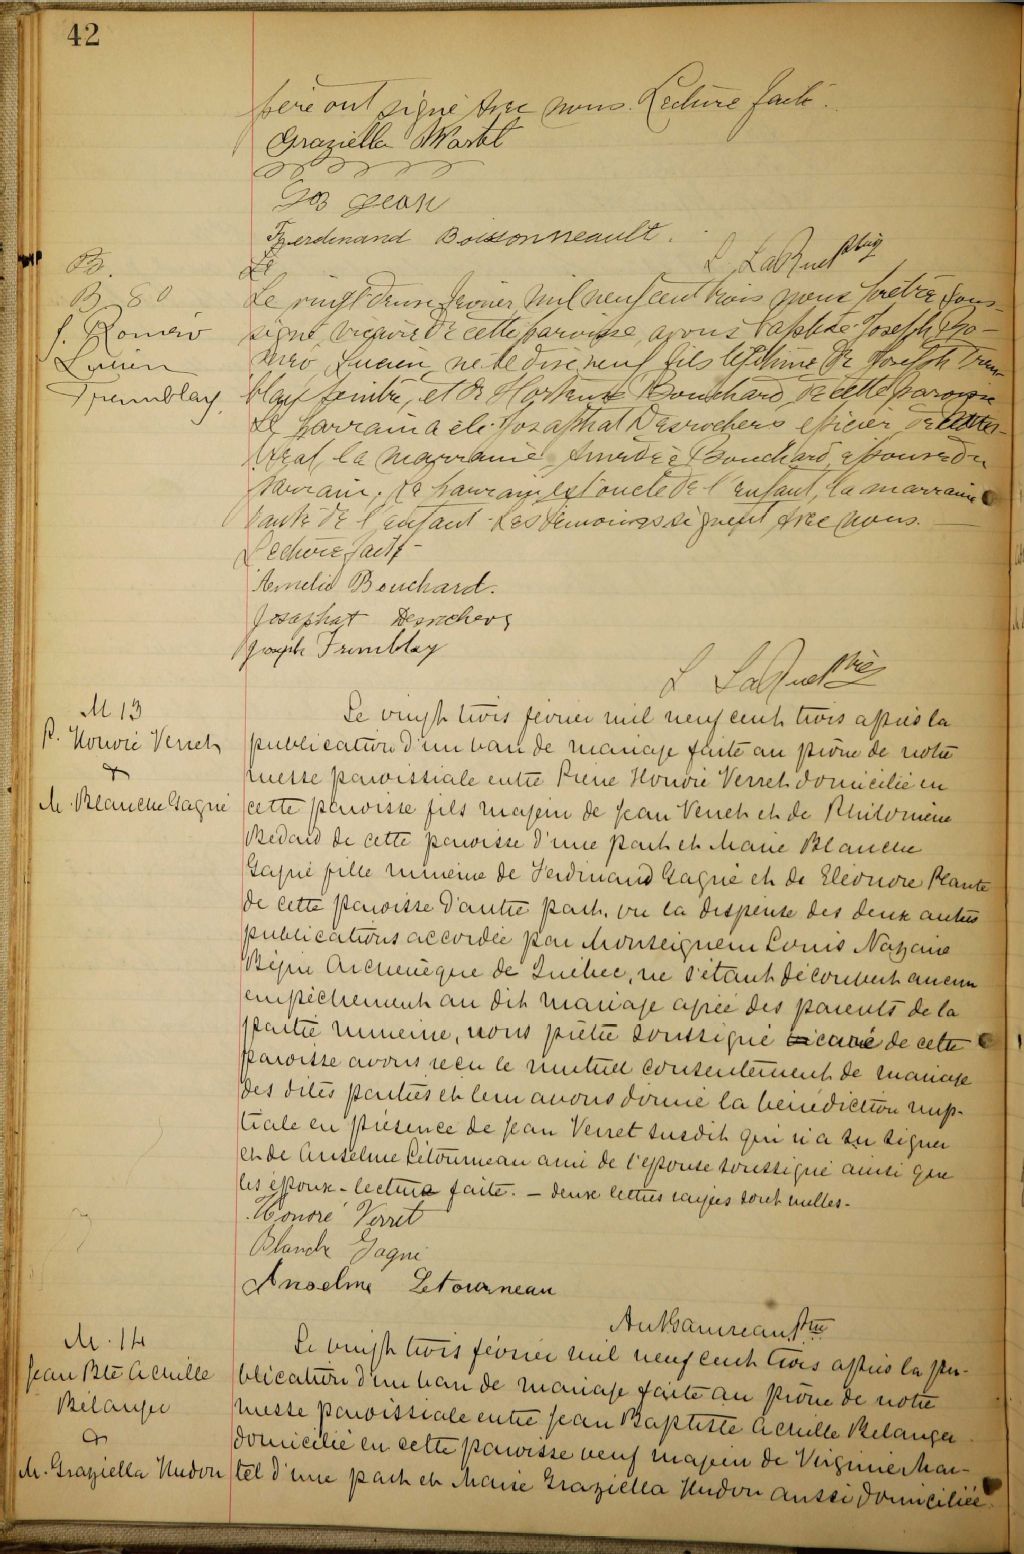 42
père ont signé avec nous. Lecture faite.
Graziella Martel
Geo Jean
Ferdinand Boissonneault.
L. LaRue Ptre
Le
B.
B 80
J. Roméo
Lucien
Tremblay
Le vingt deux février mil neuf cent trois nous prêtre sous-
signé, vicaire de cette paroisse, avons baptisé Joseph Ro-
méo, Lucien, né le dix neuf, fils légitime de Joseph Trem-
blay peintre, et de Hortense Bouchard, de cette paroisse
Le parrain a été Josaphat Desrochers épicier, de
la marraine Bouchard, épouse du
parrain; le parrain est oncle de l'enfant, la marraine
tante de l'enfant. Les témoins signent avec nous.
Lecture faite-
Amelie Bouchard.
Josaphat Desrochers
Joseph Tremblay
L LaRue Ptre
M 13
P. Honoré Verret
&
M. Blanche Gagné
Le vingt trois février mil neuf cent trois après la
publication d'un ban de mariage faite au prône de notre
messe paroissiale entre Pierre Honoré Verret domicilié en
cette paroisse fils majeur de Jean Verret et de Philomène
Bedard de cette paroisse d'une part et Marie Blanche
Gagné fille mineure de Ferdinand Gagné et de Eléonore Plante
de cette paroisse d'autre part, vu la dispense des deux autres
publications accordée par Monseigneur Louis Nazaire
Bégin Archevêque de Québec, ne s'étant découvert aucun
empêchement au dit mariage agréé des parents de la
partie mineure, nous prêtre soussigné curé de cette
paroisse avons reçu le mutuel consentement de mariage
des dites parties et leur avons donné la bénédiction nup-
tiale en présence de Jean Verret susdit qui n'a su signer
et de Anselme Létourneau ami de l'épouse soussigné ainsi que
les époux - lecture faite. - deux lettres rayées sont nulles-
Honoré Verret
Blanche Gagné
Anselme Letourneau
Ptre
M. 14
Jean Bte Achille
Bélanger
&
M. Graziella Hudon
Le vingt trois février mil neuf cent trois après la pu-
blication d'un ban de mariage faite au prône de notre
messe paroissiale entre Jean Baptiste Achille Bélanger
domicilié en cette paroisse veuf majeur de Virginie Mar-
tel d'une part et Marie Graziella Hudon aussi domiciliée